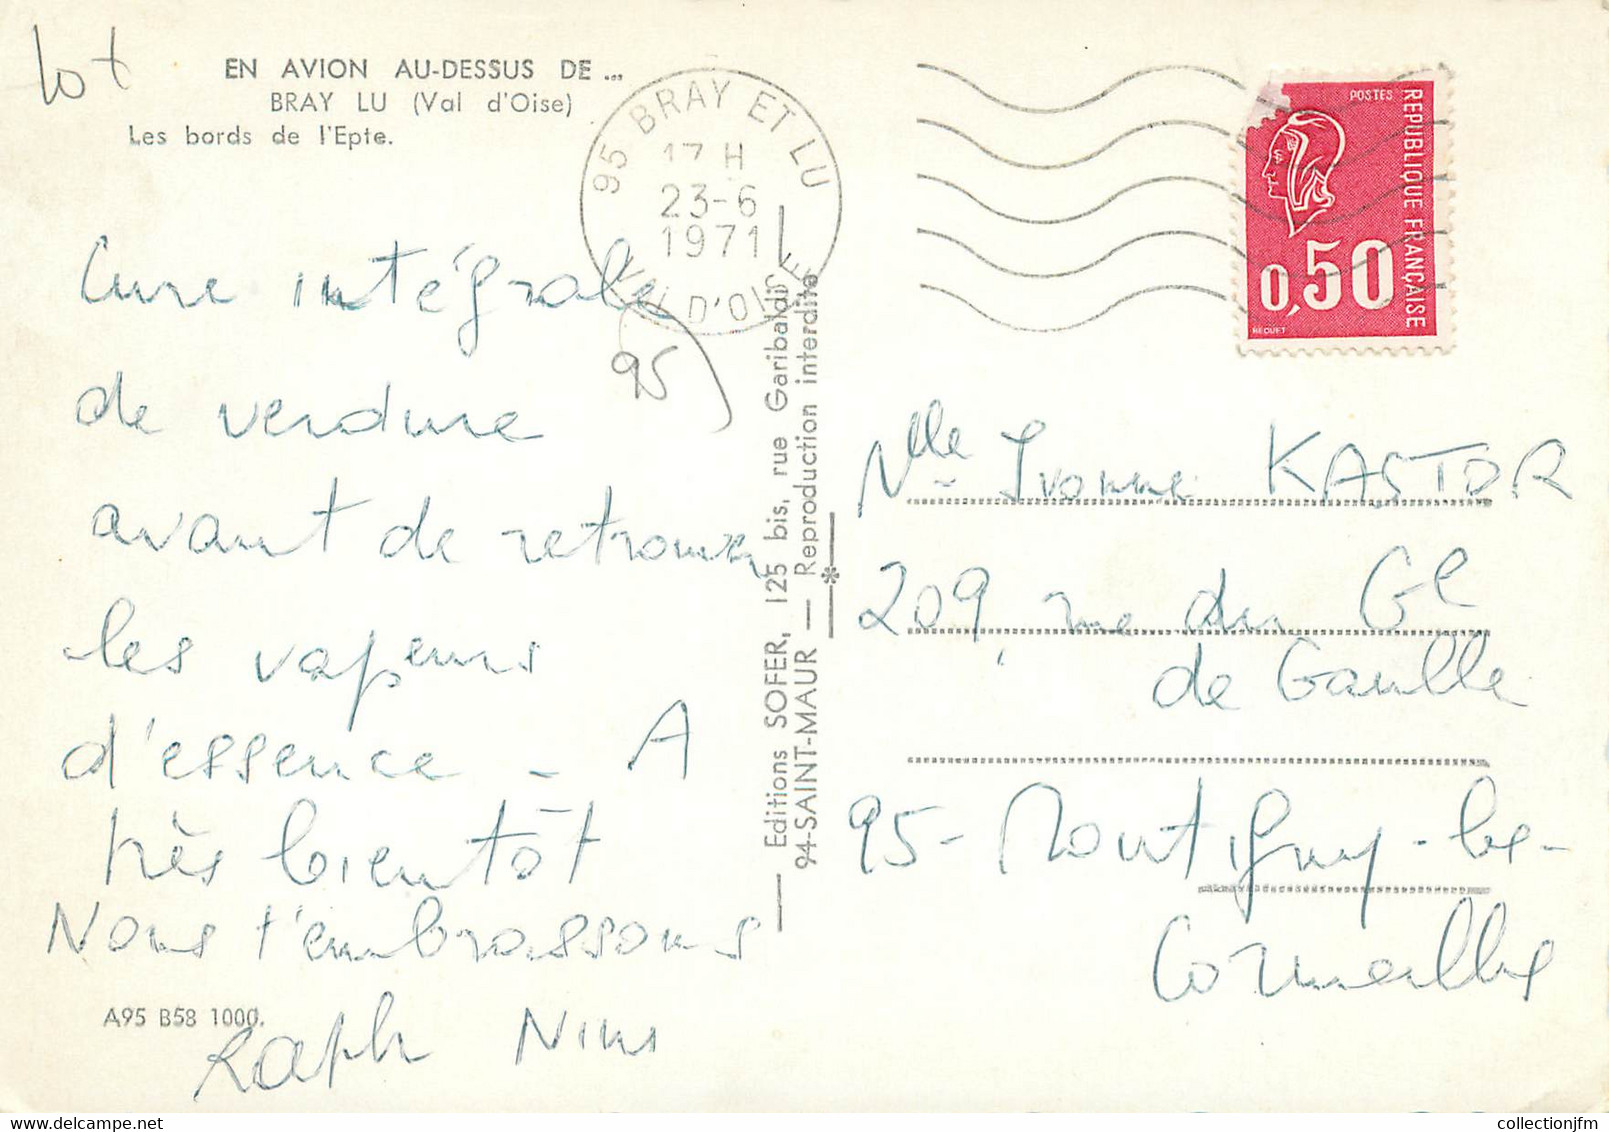 lot
EN AVION AU-DESSUS DE ...
BRAY LU (Val d'Oise)
Les bords de l'Epte.
95 BRAY ET LU
17 H
23-6
1971
VAL D'OISE
95
POSTES
REPUBLIQUE FRANÇAISE
0,50
BEQUET
Cure intégrale
de verdure
avant de retrouver
les vapeurs
d'essence - A
très bientôt
Nous t'embrassons
Raph Nins
A95 B58 1000.
— Editions SOFER, 125 bis, rue Garibaldi
94-SAINT-MAUR — Reproduction interdite
Mlle Yvonne KASTOR
209 rue du Gl
de Gaulle
95- Montigny-les-
Cormeilles
collectionjfm